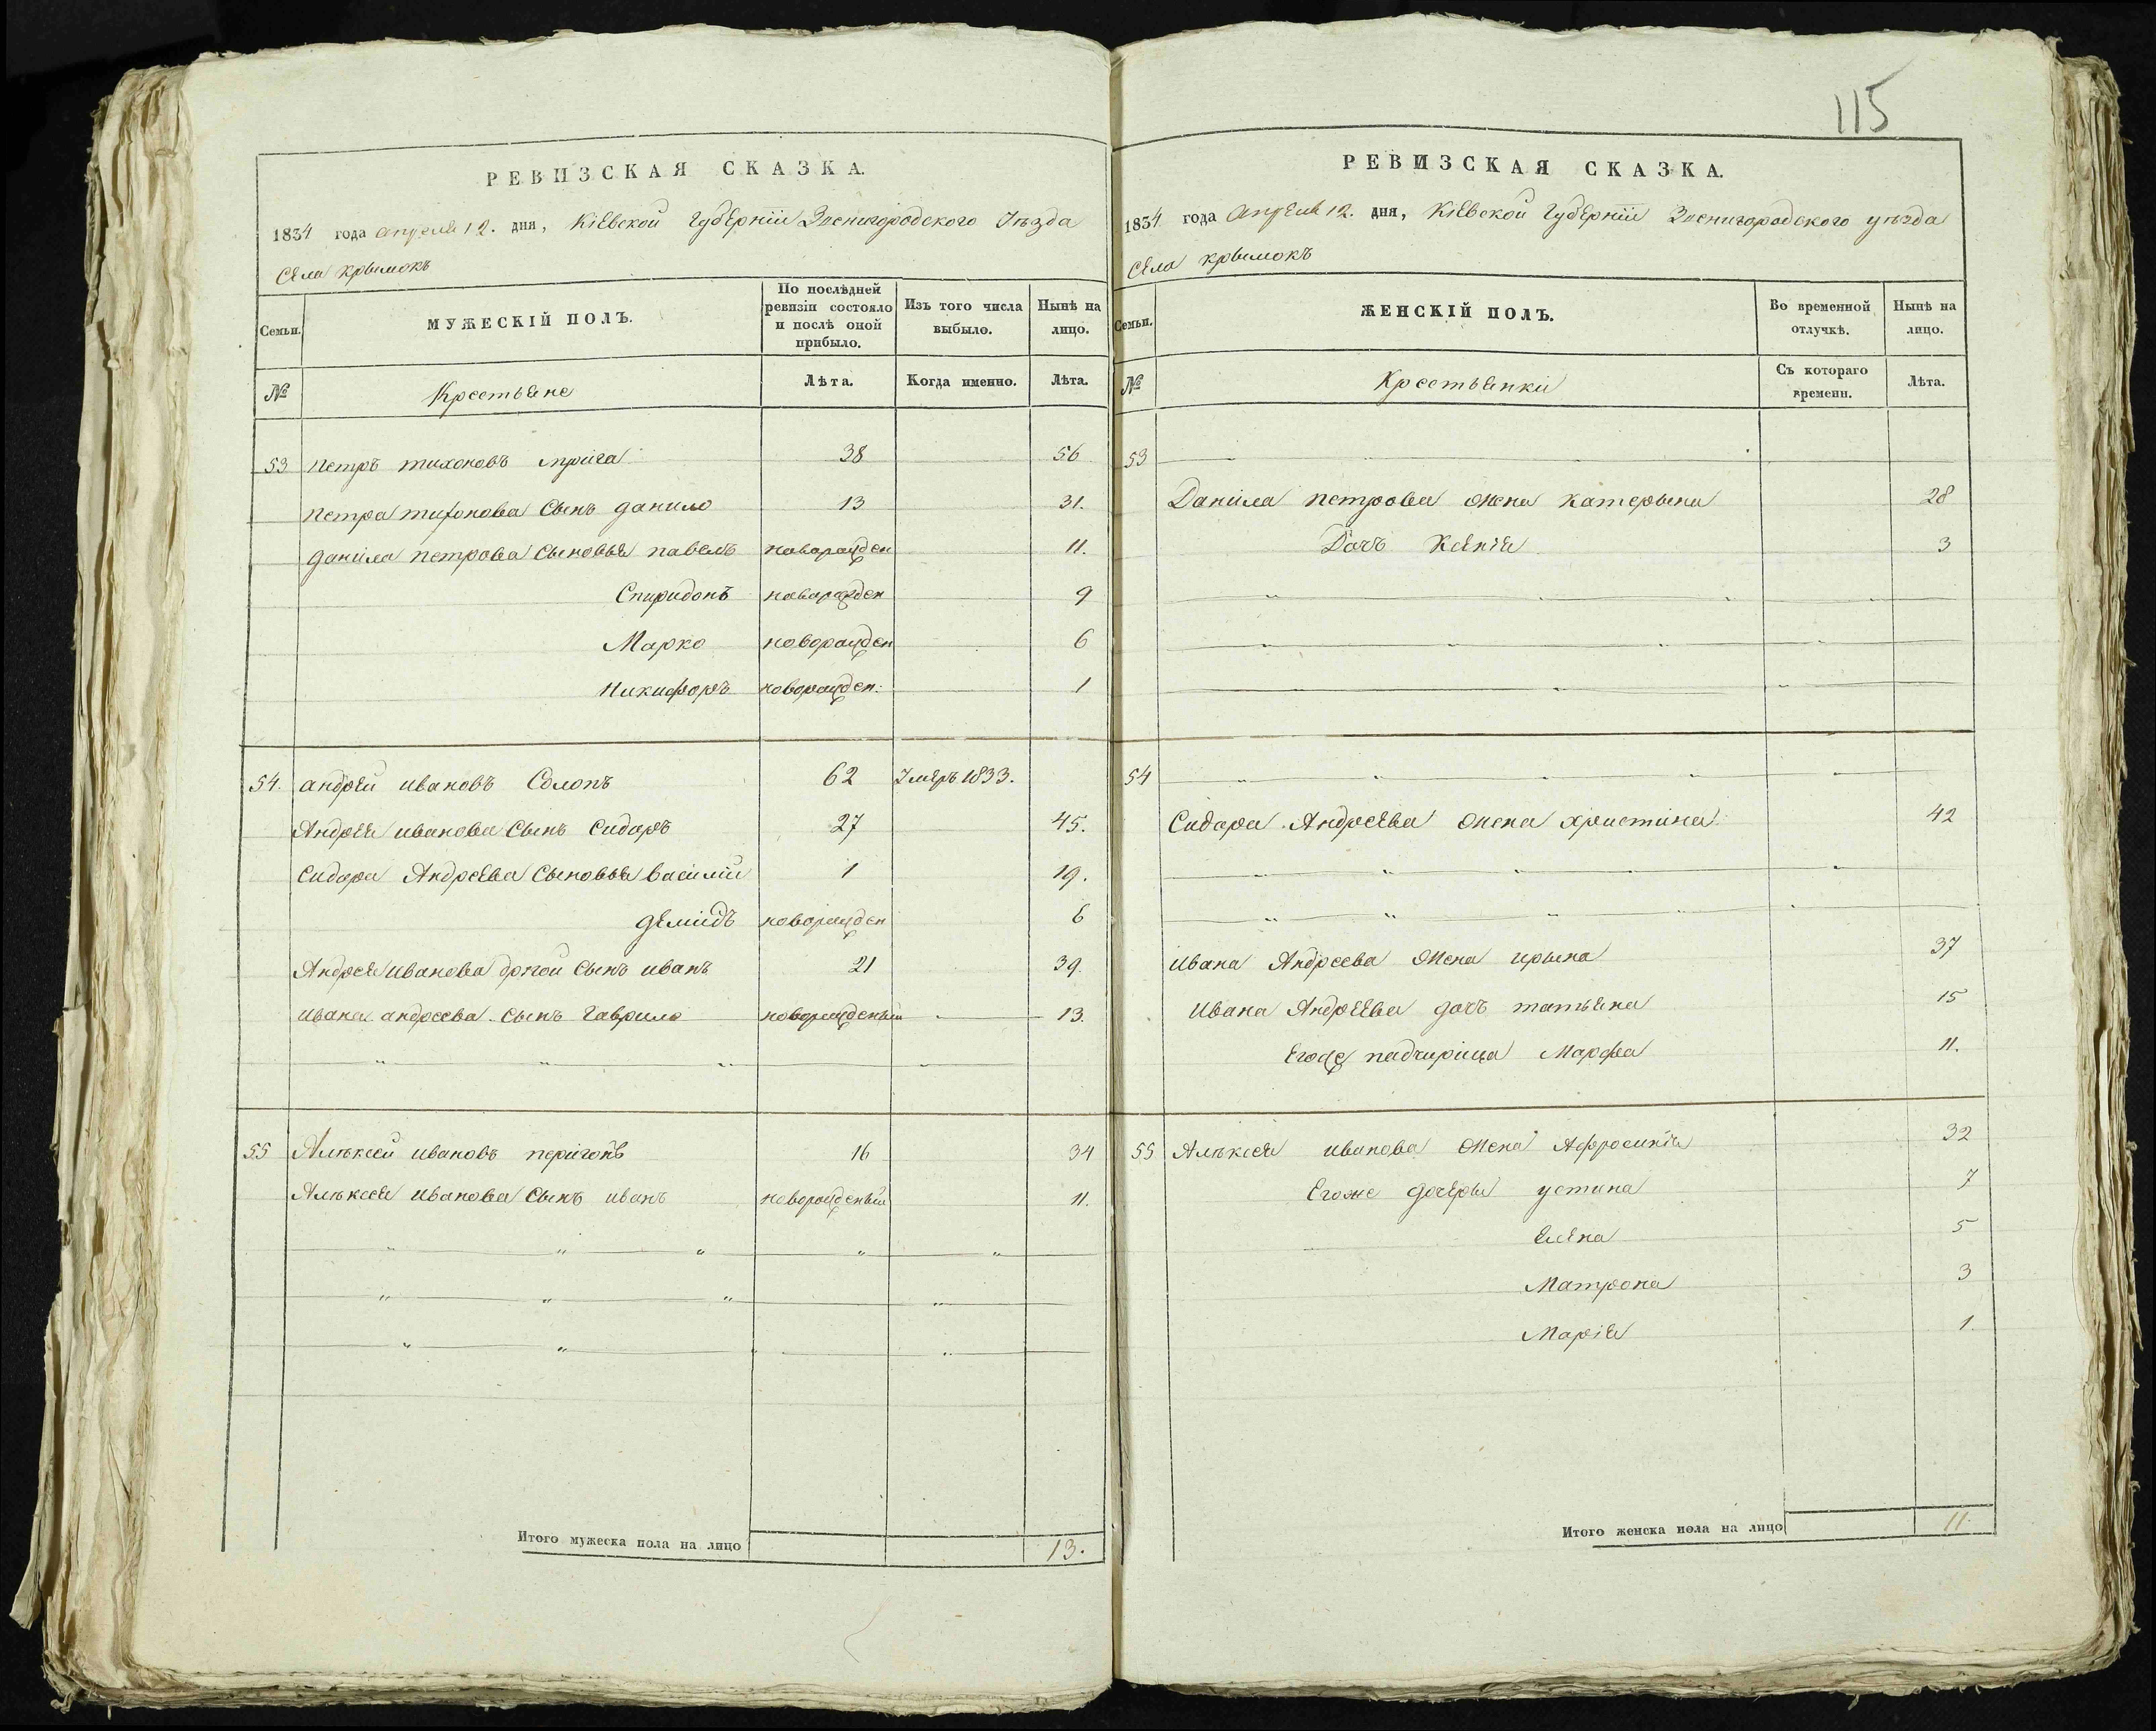 115
РЕВИЗСКАЯ СКАЗКА.
1834 года апреля 12. дня, Кіевской Губерніи Звенигородского Уѣзда
Села крымокъ
Семьи. МУЖЕСКІЙ ПОЛЪ. По послѣдней ревизіи состояло и послѣ оной прибыло. Изъ того числа выбыло. Нынѣ на лицо.
№ Крестьяне Лѣта. Когда именно. Лѣта.
53 Петръ тихоновъ 38 56
Петра тихонова Сынъ данило 13 31.
данила петрова Сыновья павелъ новорожден 11.
Спиридонъ новорожден 9
Марко новорожден 6
Никифоръ новорожден: 1
54. андрей ивановъ Солопъ 62 Умеръ 1833.
Андрея иванова Сынъ Сидоръ 27 45.
Сидора Андреева Сыновья василий 1 19.
демидъ новорожден 6
Андрея иванова другой Сынъ иванъ 21 39.
ивана андреева Сынъ гаврило новорожденый 13.
55 Алѣксей ивановъ перігонъ 16 34
Алѣксея иванова Сынъ иванъ новорожденый 11.
Итого мужеска пола на лицо 13.
РЕВИЗСКАЯ СКАЗКА.
1834 года апреля 12. дня, Кіевской Губерніи Звенигородского уѣзда
Села крымокъ
Семьи. ЖЕНСКІЙ ПОЛЪ. Во временной отлучкѣ. Нынѣ на лицо.
№ Крестьянки Съ котораго времени. Лѣта.
53
Данила петрова жена катерына 28
Дочъ Ксенія 3
54
Сидора Андреева жена христина 42
ивана Андреева жена ирына 37
ивана Андреева дочъ татьяна 15
Егоже падчирица Марфа 11.
55 Алѣксея иванова жена Афросинія 32
Егоже дочеры устина 7
Елена 5
Матрона 3
Марія 1.
Итого женска пола на лицо 11.